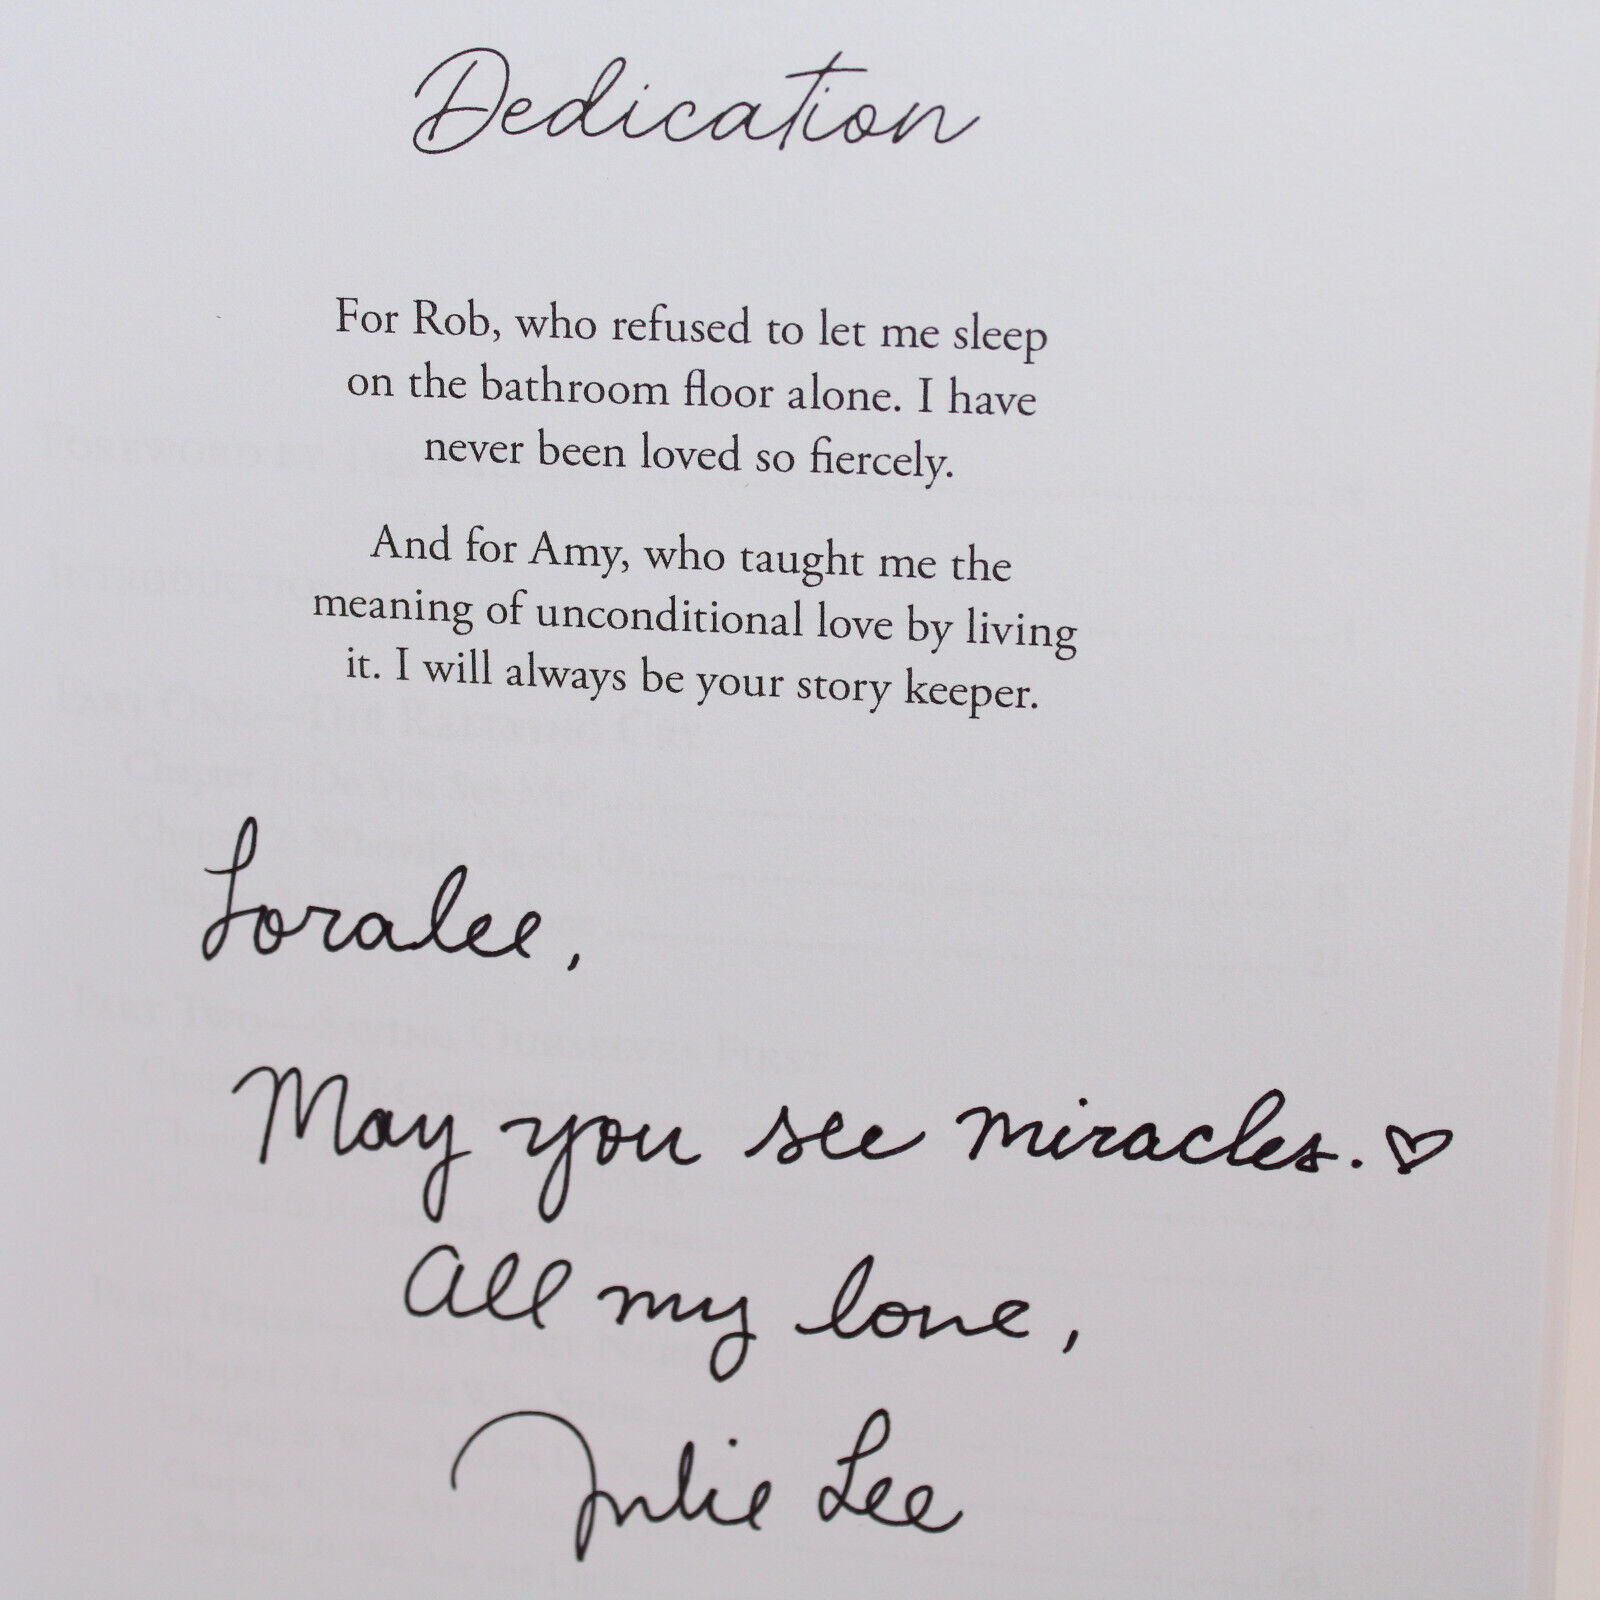 Dedication
For Rob, who refused to let me sleep
on the bathroom floor alone. I have
never been loved so fiercely.
And for Amy, who taught me the
meaning of unconditional love by living
it. I will always be your story keeper.
Loralee,
May you see miracles. ♡
All my love,
Julie Lee